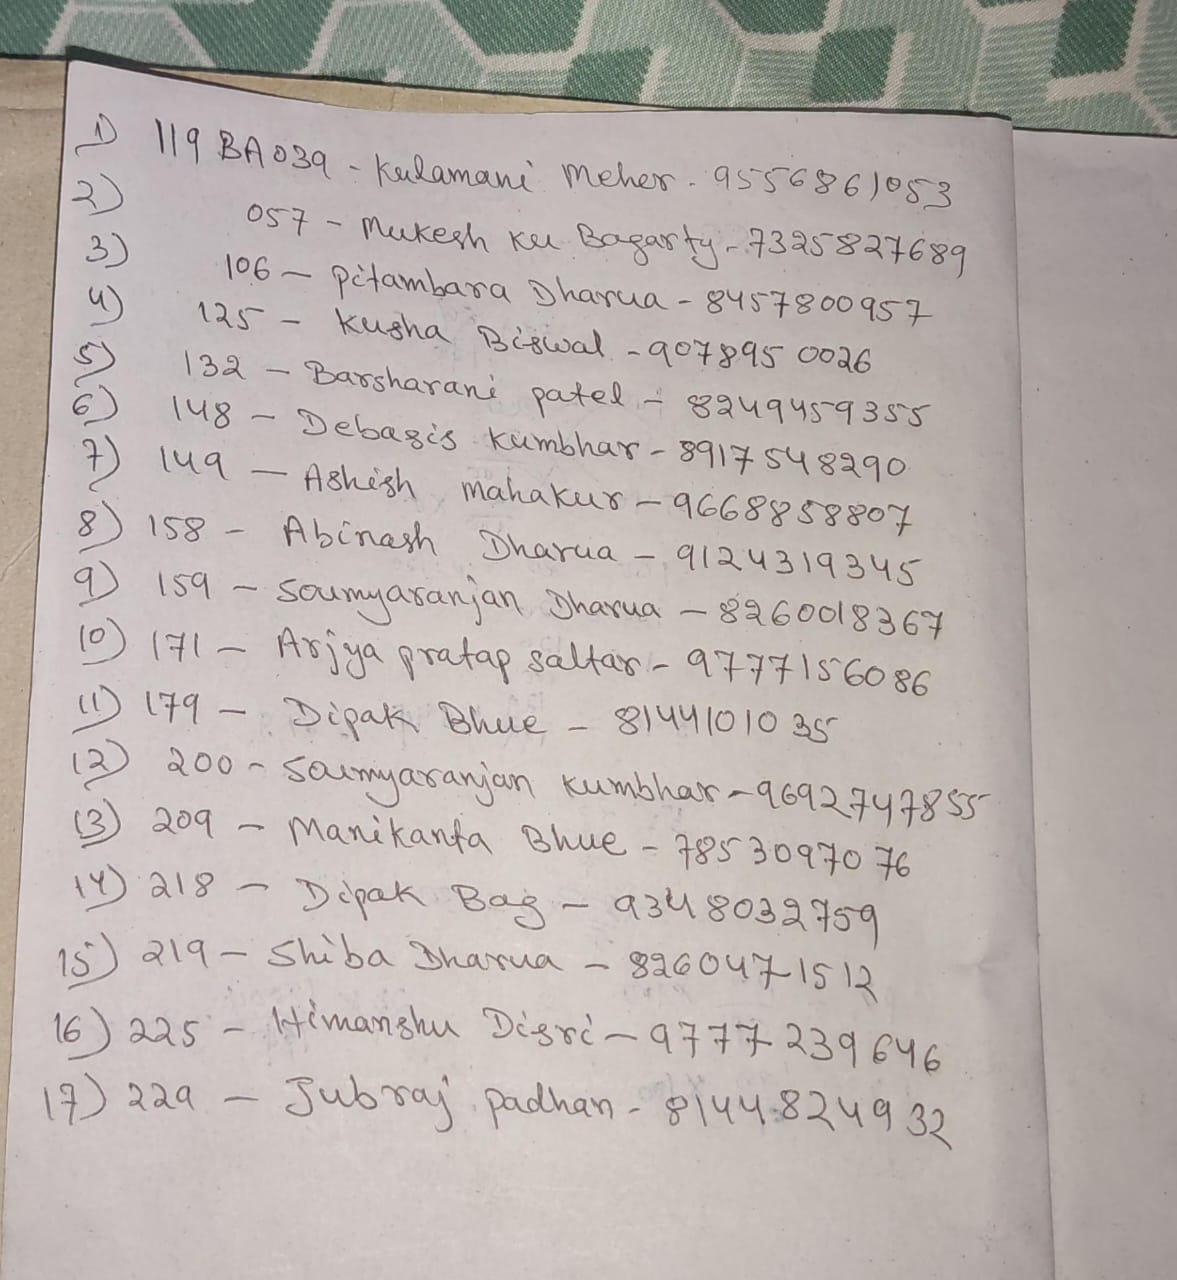 1) 119 BA 039 - Kulamani Meher - 9556861053
2) 057 - Mukesh Ku Bagarty - 7325827689
3) 106 - Pitambara Dharua - 8457800957
4) 125 - Kusha Biswal - 9078950026
5) 132 - Barsharani patel - 8249459355
6) 148 - Debasis Kumbhar - 8917548290
7) 149 - Ashish Mahakur - 9668858807
8) 158 - Abinash Dharua - 9124319345
9) 159 - Soumyaranjan Dharua - 8260018367
10) 171 - Arjya pratap saltar - 9777156086
11) 179 - Dipak Bhue - 8144101035
12) 200 - Soumyaranjan Kumbhar - 9692747855
13) 209 - Manikanta Bhue - 7853097076
14) 218 - Dipak Bag - 9348032759
15) 219 - Shiba Dharua - 8260471512
16) 225 - Himanshu Disri - 9777239646
17) 229 - Jubraj padhan - 8144824932